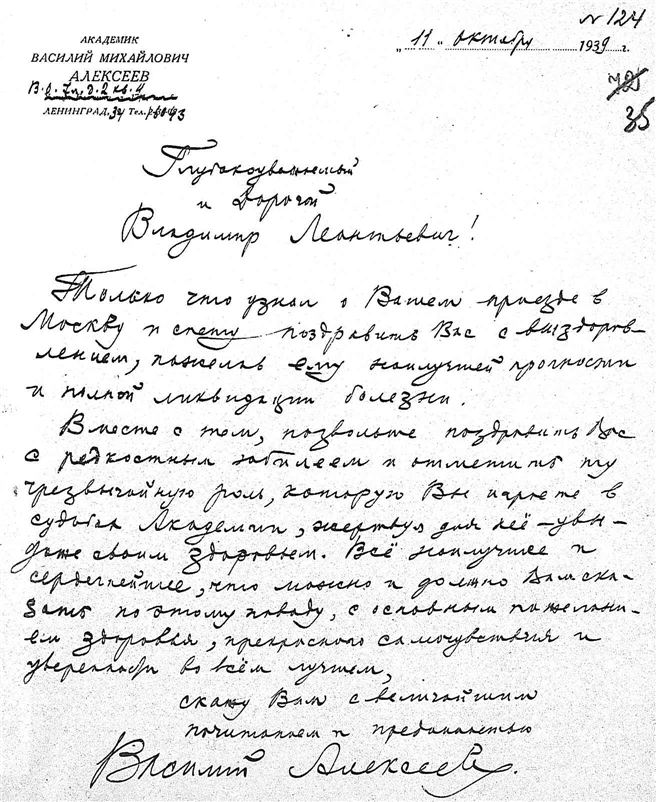 № 124
АКАДЕМИК
ВАСИЛИЙ МИХАЙЛОВИЧ
АЛЕКСЕЕВ
В.О. 7 л. д. 2 кв. 9
ЛЕНИНГРАД, 34 Тел.
„ 11 " октября 1939 г.
35
Глубокоуважаемый
и дорогой
Владимир Леонтьевич!
Только что узнал о Вашем приезде в
Москву и спешу поздравить Вас с выздоров-
лением, пожелав ему наилучшей прочности
и полной ликвидации болезни.
Вместе с тем, позвольте поздравить Вас
с редкостным юбилеем и отметить ту
чрезвычайную роль, которую Вы играете в
судьбах Академии, жертвуя для неё – увы –
даже своим здоровьем. Всё наилучшее и
сердечнейшее, что можно и должно Вам ска-
зать по этому поводу, с основным пожелани-
ем здоровья, прекрасного самочувствия и
уверенности во всём лучшем,
скажу Вам с величайшим
почитанием и преданностью
Василий Алексеев.